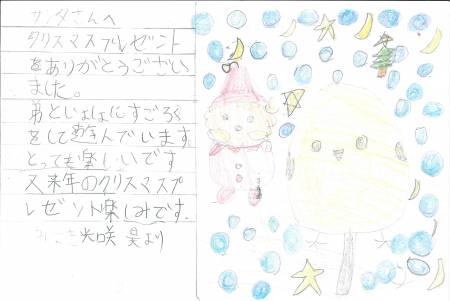 サンタさんへ
クリスマスプレゼント
をありがとうござい
ました。
弟といょしょにすごろく
をして遊んでいます
とっても楽しいです
又来年のクリスマスプ
レゼント楽しみです.
みさき光咲 昊より